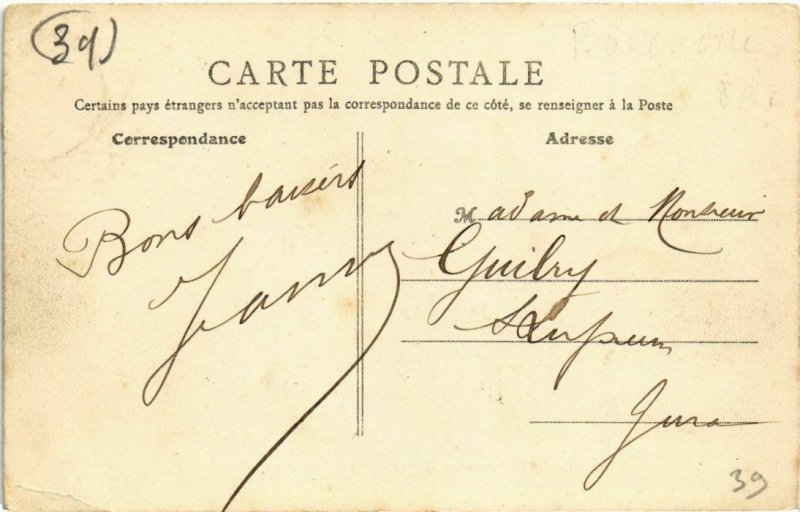 (39)
CARTE POSTALE
Certains pays étrangers n'acceptant pas la correspondance de ce côté, se renseigner à la Poste
Correspondance
Adresse
Bons baisers
Madame et Monsieur
Jura
39